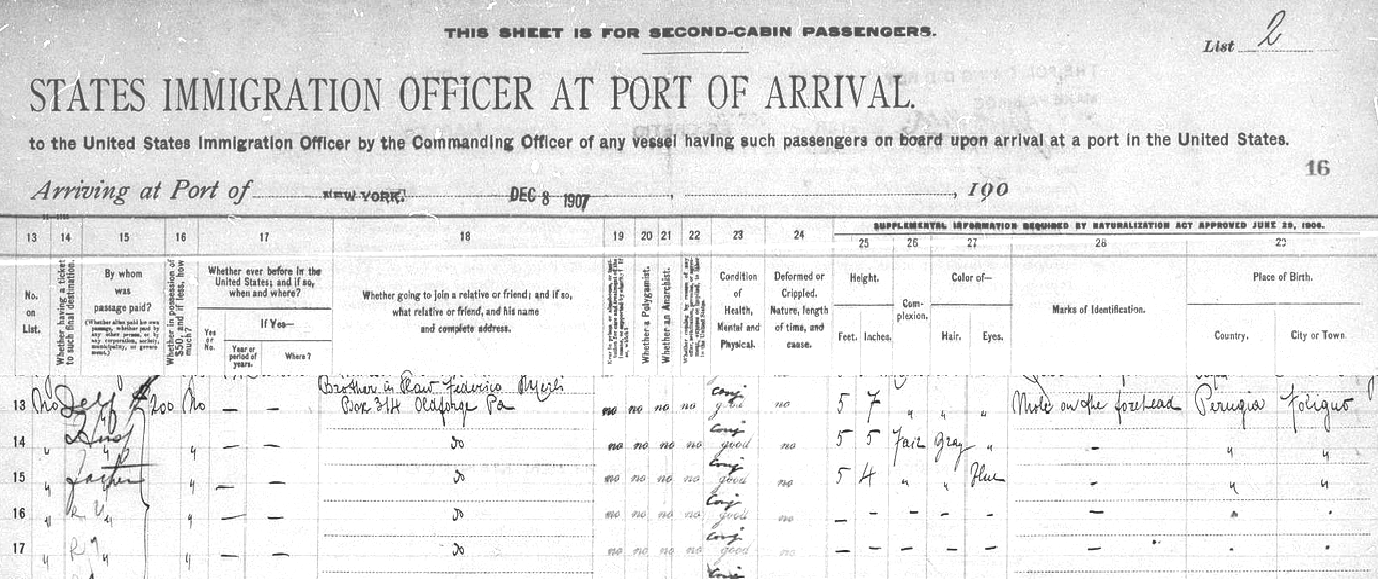 THIS SHEET IS FOR SECOND-CABIN PASSENGERS.
List 2
STATES IMMIGRATION OFFICER AT PORT OF ARRIVAL.
to the United States Immigration Officer by the Commanding Officer of any vessel having such passengers on board upon arrival at a port in the United States.
16
Arriving at Port of NEW YORK. DEC 8 1907, , 190
SUPPLEMENTAL INFORMATION REQUIRED BY NATURALIZATION ACT APPROVED JUNE 29, 1906.
13 14 15 16 17 18 19 20 21 22 23 24 25 26 27 28 29
No. on List.
Whether having a ticket to such final destination.
By whom was passage paid?
(Whether alien paid his own passage, whether paid by any other person, or by any corporation, society, municipality, or government.)
Whether in possession of $50, and if less, how much?
Whether ever before in the United States; and if so, when and where?
Yes or No.
If Yes—
Year or period of years.
Where?
Whether going to join a relative or friend; and if so, what relative or friend, and his name and complete address.
Whether a Polygamist.
Whether an Anarchist.
Condition of Health, Mental and Physical.
Deformed or Crippled. Nature, length of time, and cause.
Height.
Feet. Inches.
Complexion.
Color of—
Hair. Eyes.
Marks of Identification.
Place of Birth.
Country. City or Town.
Brother in Law Federico
13 no Self 200 no — — Box 314 Oldforge Pa no no no no good no 5 7 " " " Mole on the forehead Perugia Foligno
14 " " — — Do no no no no good no 5 5 Fair Gray " - " "
15 " father " — — Do no no no no good no 5 4 " " Blue - " "
16 " " — — Do no no no no good no - - - - - -
17 " " — — Do no no no no good no - - - - - -